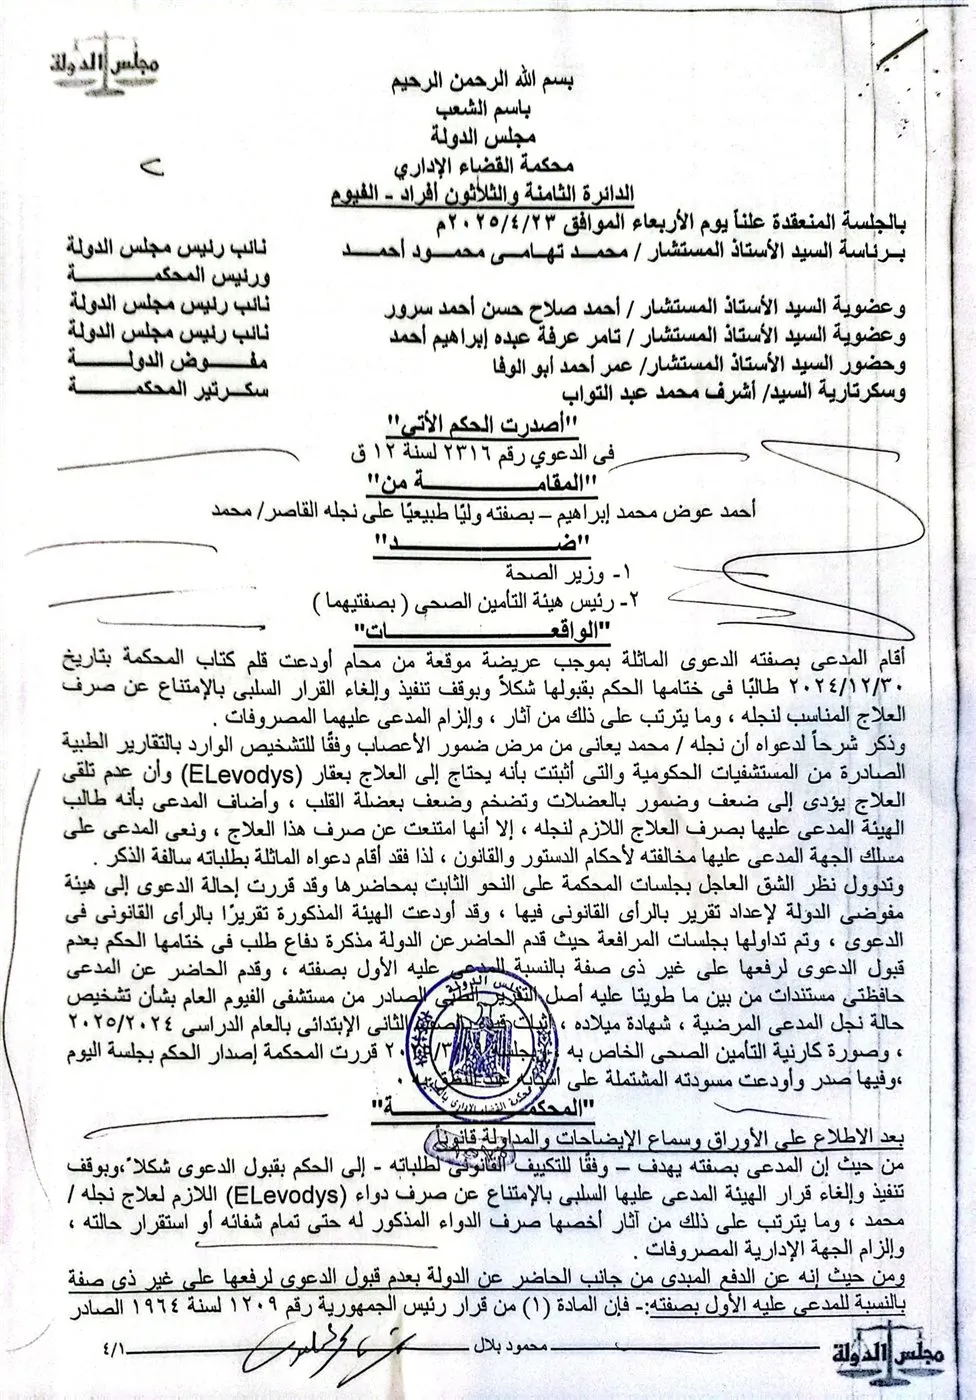 مجلس الدولة
بسم الله الرحمن الرحيم
باسم الشعب
مجلس الدولة
محكمة القضاء الإداري
الدائرة الثامنة والثلاثون أفراد - الفيوم
بالجلسة المنعقدة علناً يوم الأربعاء الموافق ٢٠٢٥/٤/٢٣م
برئاسة السيد الأستاذ المستشار / محمد تهامى محمود أحمد نائب رئيس مجلس الدولة
ورئيس المحكمة
وعضوية السيد الأستاذ المستشار / أحمد صلاح حسن أحمد سرور نائب رئيس مجلس الدولة
وعضوية السيد الأستاذ المستشار / تامر عرفة عبده إبراهيم أحمد نائب رئيس مجلس الدولة
وحضور السيد الأستاذ المستشار/ عمر أحمد أبو الوفا مفوض الدولة
وسكرتارية السيد/ أشرف محمد عبد التواب سكرتير المحكمة
"أصدرت الحكم الأتى"
فى الدعوي رقم ٢٣١٦ لسنة ١٢ ق
"المقامة من"
أحمد عوض محمد إبراهيم – بصفته وليًا طبيعيًا على نجله القاصر/ محمد
"ضد"
١- وزير الصحة
٢- رئيس هيئة التأمين الصحى ( بصفتيهما )
"الواقعات"
أقام المدعى بصفته الدعوى الماثلة بموجب عريضة موقعة من محام أودعت قلم كتاب المحكمة بتاريخ
٢٠٢٤/١٢/٣٠ طالبًا فى ختامها الحكم بقبولها شكلاً وبوقف تنفيذ وإلغاء القرار السلبى بالإمتناع عن صرف
العلاج المناسب لنجله ، وما يترتب على ذلك من آثار ، وإلزام المدعى عليهما المصروفات .
وذكر شرحاً لدعواه أن نجله / محمد يعانى من مرض ضمور الأعصاب وفقًا للتشخيص الوارد بالتقارير الطبية
الصادرة من المستشفيات الحكومية والتى أثبتت بأنه يحتاج إلى العلاج بعقار (ELevodys) وأن عدم تلقى
العلاج يؤدى إلى ضعف وضمور بالعضلات وتضخم وضعف بعضلة القلب ، وأضاف المدعى بأنه طالب
الهيئة المدعى عليها بصرف العلاج اللازم لنجله ، إلا أنها امتنعت عن صرف هذا العلاج ، ونعى المدعى على
مسلك الجهة المدعى عليها مخالفته لأحكام الدستور والقانون ، لذا فقد أقام دعواه الماثلة بطلباته سالفة الذكر .
وتدوول نظر الشق العاجل بجلسات المحكمة على النحو الثابت بمحاضرها وقد قررت إحالة الدعوى إلى هيئة
مفوضى الدولة لإعداد تقرير بالرأى القانونى فيها ، وقد أودعت الهيئة المذكورة تقريرًا بالرأى القانونى فى
الدعوى ، وتم تداولها بجلسات المرافعة حيث قدم الحاضرعن الدولة مذكرة دفاع طلب فى ختامها الحكم بعدم
قبول الدعوى لرفعها على غير ذى صفة بالنسبة للمدعى عليه الأول بصفته ، وقدم الحاضر عن المدعى
حافظتى مستندات من بين ما طويتا عليه أصل التقرير الطبى الصادر من مستشفى الفيوم العام بشأن تشخيص
حالة نجل المدعى المرضية ، شهادة ميلاده ، إثبات قيد بالصف الثانى الإبتدائى بالعام الدراسى ٢٠٢٥/٢٠٢٤
، وصورة كارنية التأمين الصحى الخاص به ، وبجلسة قررت المحكمة إصدار الحكم بجلسة اليوم
،وفيها صدر وأودعت مسودته المشتملة على أسبابه عند النطق به .
"المحكمة"
بعد الاطلاع على الأوراق وسماع الإيضاحات والمداولة قانوناً
من حيث إن المدعى بصفته يهدف – وفقًا للتكييف القانونى لطلباته - إلى الحكم بقبول الدعوى شكلاً ،وبوقف
تنفيذ وإلغاء قرار الهيئة المدعى عليها السلبى بالإمتناع عن صرف دواء (ELevodys) اللازم لعلاج نجله /
محمد ، وما يترتب على ذلك من آثار أخصها صرف الدواء المذكور له حتى تمام شفائه أو استقرار حالته ،
وإلزام الجهة الإدارية المصروفات .
ومن حيث إنه عن الدفع المبدى من جانب الحاضر عن الدولة بعدم قبول الدعوى لرفعها على غير ذى صفة
بالنسبة للمدعى عليه الأول بصفته:- فإن المادة (١) من قرار رئيس الجمهورية رقم ١٢٠٩ لسنة ١٩٦٤ الصادر
محمود بلال
٤/١
مجلس الدولة